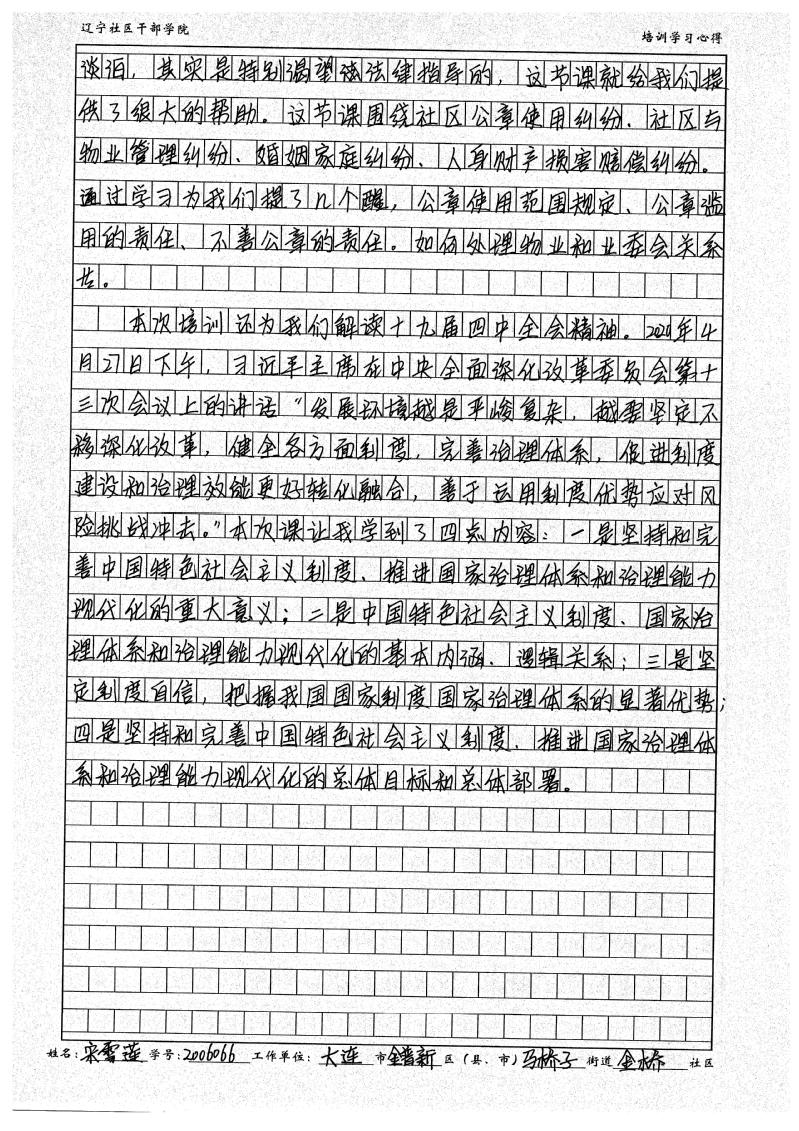 辽宁社区干部学院
培训学习心得
淡泊，其实是特别渴望法法律指导的，这节课就给我们提
供了很大的帮助。这节课围绕社区公章使用纠纷、社区与
物业管理纠纷、婚姻家庭纠纷、人身财产损害赔偿纠纷。
通过学习为我们提了几个醒，公章使用范围规定、公章滥
用的责任、不善公章的责任。如何处理物业和业委会关系
。
本次培训还为我们解读十九届四中全会精神。2020年4
月27日下午，习近平主席在中央全面深化改革委员会第十
三次会议上的讲话“发展环境越是严峻复杂，越要坚定不
移深化改革，健全各方面制度，完善治理体系，促进制度
建设和治理效能更好转化融合，善于运用制度优势应对风
险挑战冲击。”本次课让我学到了四点内容：一是坚持和完
善中国特色社会主义制度、推进国家治理体系和治理能力
现代化的重大意义；二是中国特色社会主义制度、国家治
理体系和治理能力现代化的基本内涵、逻辑关系；三是坚
定制度自信，把握我国国家制度国家治理体系的显著优势；
四是坚持和完善中国特色社会主义制度、推进国家治理体
系和治理能力现代化的总体目标和总体部署。
姓名：宋雪莲 学号：2006066 工作单位：大连 市 金普新 区（县、市）马桥子 街道 金桥 社区